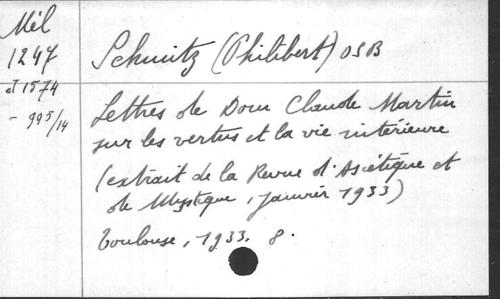 Mél
1247
et 1574
- 995/14
Schmitz (Philibert) OSB
Lettres de Dom Claude Martin
sur les vertus et la vie intérieure
(extrait de la Revue d'Ascétique et
de Mystique, janvier 1933)
Toulouse, 1933. 8.